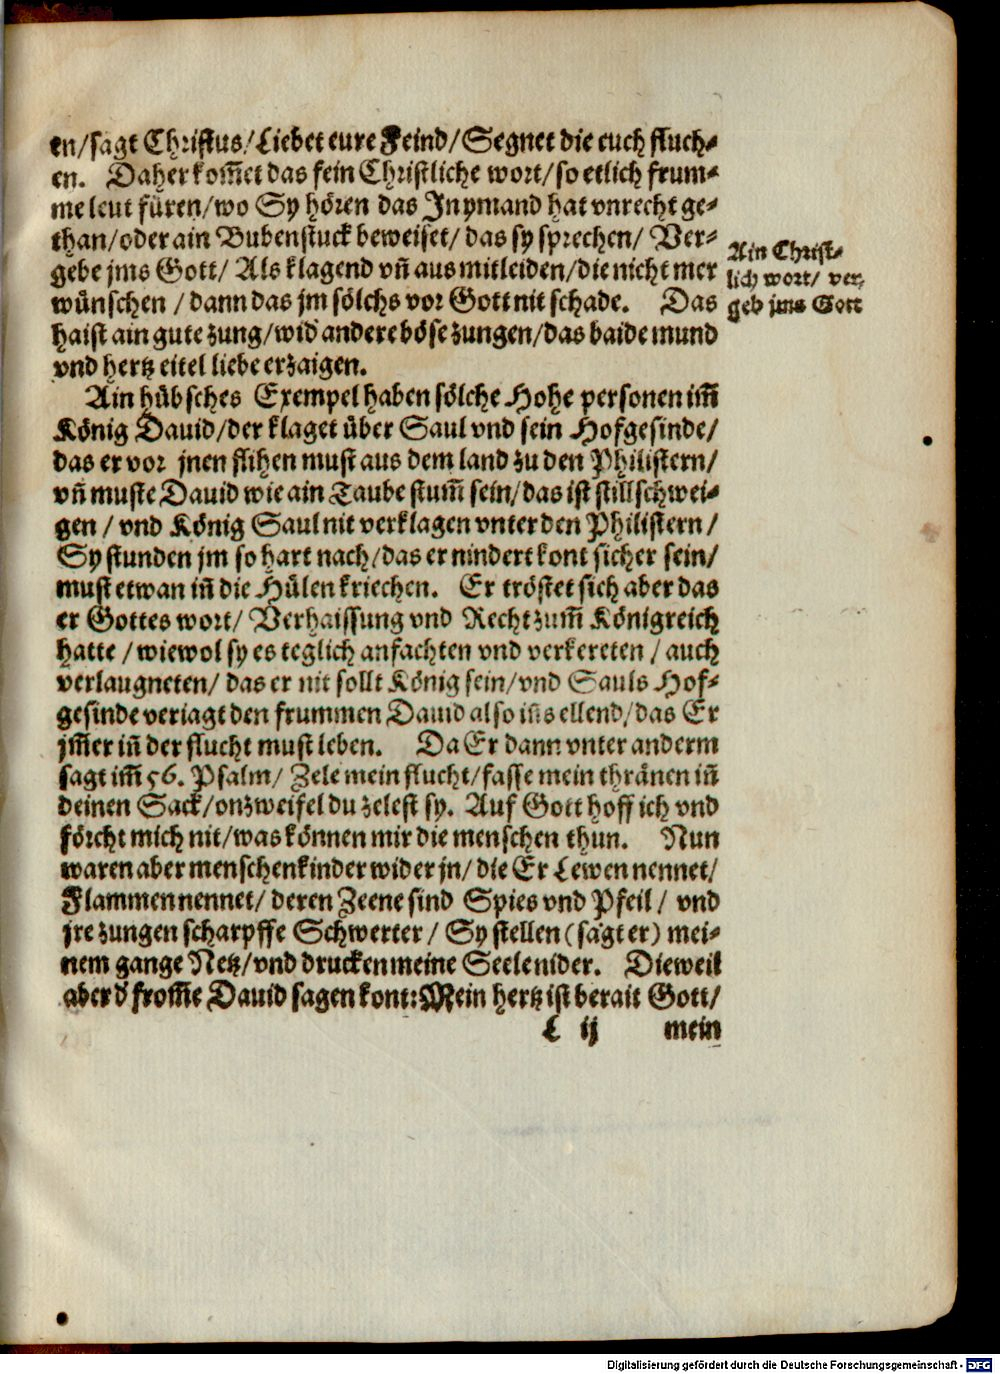 en/sagt Christus/Liebet eure Feind/Segnet die euch fluch⸗
en. Daher kom̃et das fein Christliche wort/so etlich frum⸗
me leut füren/wo Sy hören das In ymand hat vnrecht ge⸗
than/oder ain Bubenstuck beweiset/das sy sprechen/ Ver⸗
gebe jms Gott/ Als klagend vñ aus mitleiden/die nicht mer
wünschen/dann das jm sölchs vor Gott nit schade. Das
haist ain gute zung/wid̕ andere böse zungen/das baide mund
vnd hertz eitel liebe erzaigen.
Ain Christ⸗
lich wort/ ver⸗
geb jms Gott
Ain hübsches Exempel haben sölche Hohe personen im̃
König Dauid/der klaget über Saul vnd sein Hofgesinde/
das er vor jnen flihen must aus dem land zu den Philistern/
vñ muste Dauid wie ain Taube stum̃ sein/das ist stillschwei⸗
gen/vnd König Saul nit verklagen vnter den Philistern/
Sy stunden jm so hart nach/das er nindert kont sicher sein/
must etwan iñ die Hülen kriechen. Er tröstet sich aber das
er Gottes wort/ Verhaissung vnd Recht zum̃ Königreich
hatte/wiewol sy es teglich anfachten vnd verkereten/auch
verlaugneten/das er nit sollt König sein/vnd Sauls Hof⸗
gesinde veriagt den frummen Dauid also iñs ellend/das Er
jm̃er iñ der flucht must leben. Da Er dann vnter anderm
sagt im̃ 56. Psalm/ Zele mein flucht/fasse mein thränen iñ
deinen Sack/onzweifel du zelest sy. Auf Gott hoff ich vnd
förcht mich nit/was können mir die menschen thun. Nun
waren aber menschenkinder wider jn/die Er Lewen nennet/
Flammen nennet/deren Zeene sind Spies vnd Pfeil/ vnd
jre zungen scharpffe Schwerter/ Sy stellen (sagt er) mei⸗
nem gange Netz/vnd drucken meine Seele nider. Dieweil
aber d̕ from̃e Dauid sagen kont: Mein hertz ist berait Gott/
L ij mein
Digitalisierung gefördert durch die Deutsche Forschungsgemeinschaft - DFG